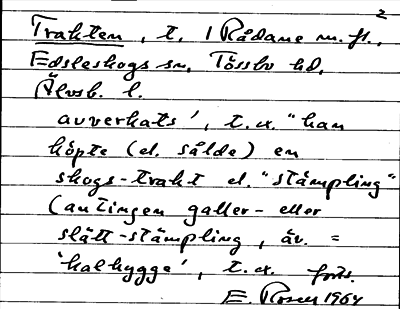 2
Trakten, t. 1 Rådane m. fl.,
Edsleskogs sn, Tössbo hd,
Älvsb. l.
avverkats', t.ex. "han
köpte (el. sålde) en
skogs-trakt el. "stämpling"
(antingen galler- eller
slätt-stämpling, äv. =
'kalhygge', t.ex. forts.
E. Rosen 1964